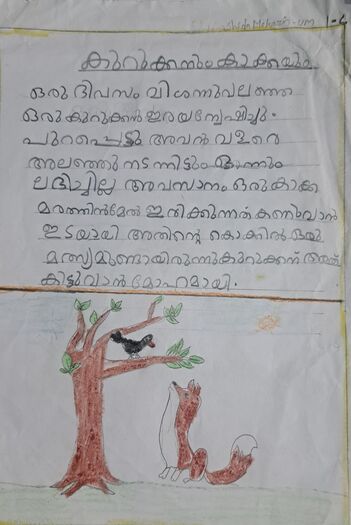 കുറുക്കനും കാക്കയും
ഒരു ദിവസം വിശന്നുവലഞ്ഞ
ഒരു കുറുക്കൻ ഇരയന്വേഷിച്ചു.
പുറപ്പെട്ടു അവൻ വളരെ
അലഞ്ഞു നടന്നിട്ടും ഒന്നും
ലഭിച്ചില്ല അവസാനം ഒരു കാക്ക
മരത്തിൻമേൽ ഇരിക്കുന്നത് കാണുവാൻ
ഇടയായി അതിന്റെ കൊക്കിൽ ഒരു
മത്സ്യമുണ്ടായിരുന്നു കുറുക്കന് അത്
കിട്ടുവാൻ മോഹമായി.